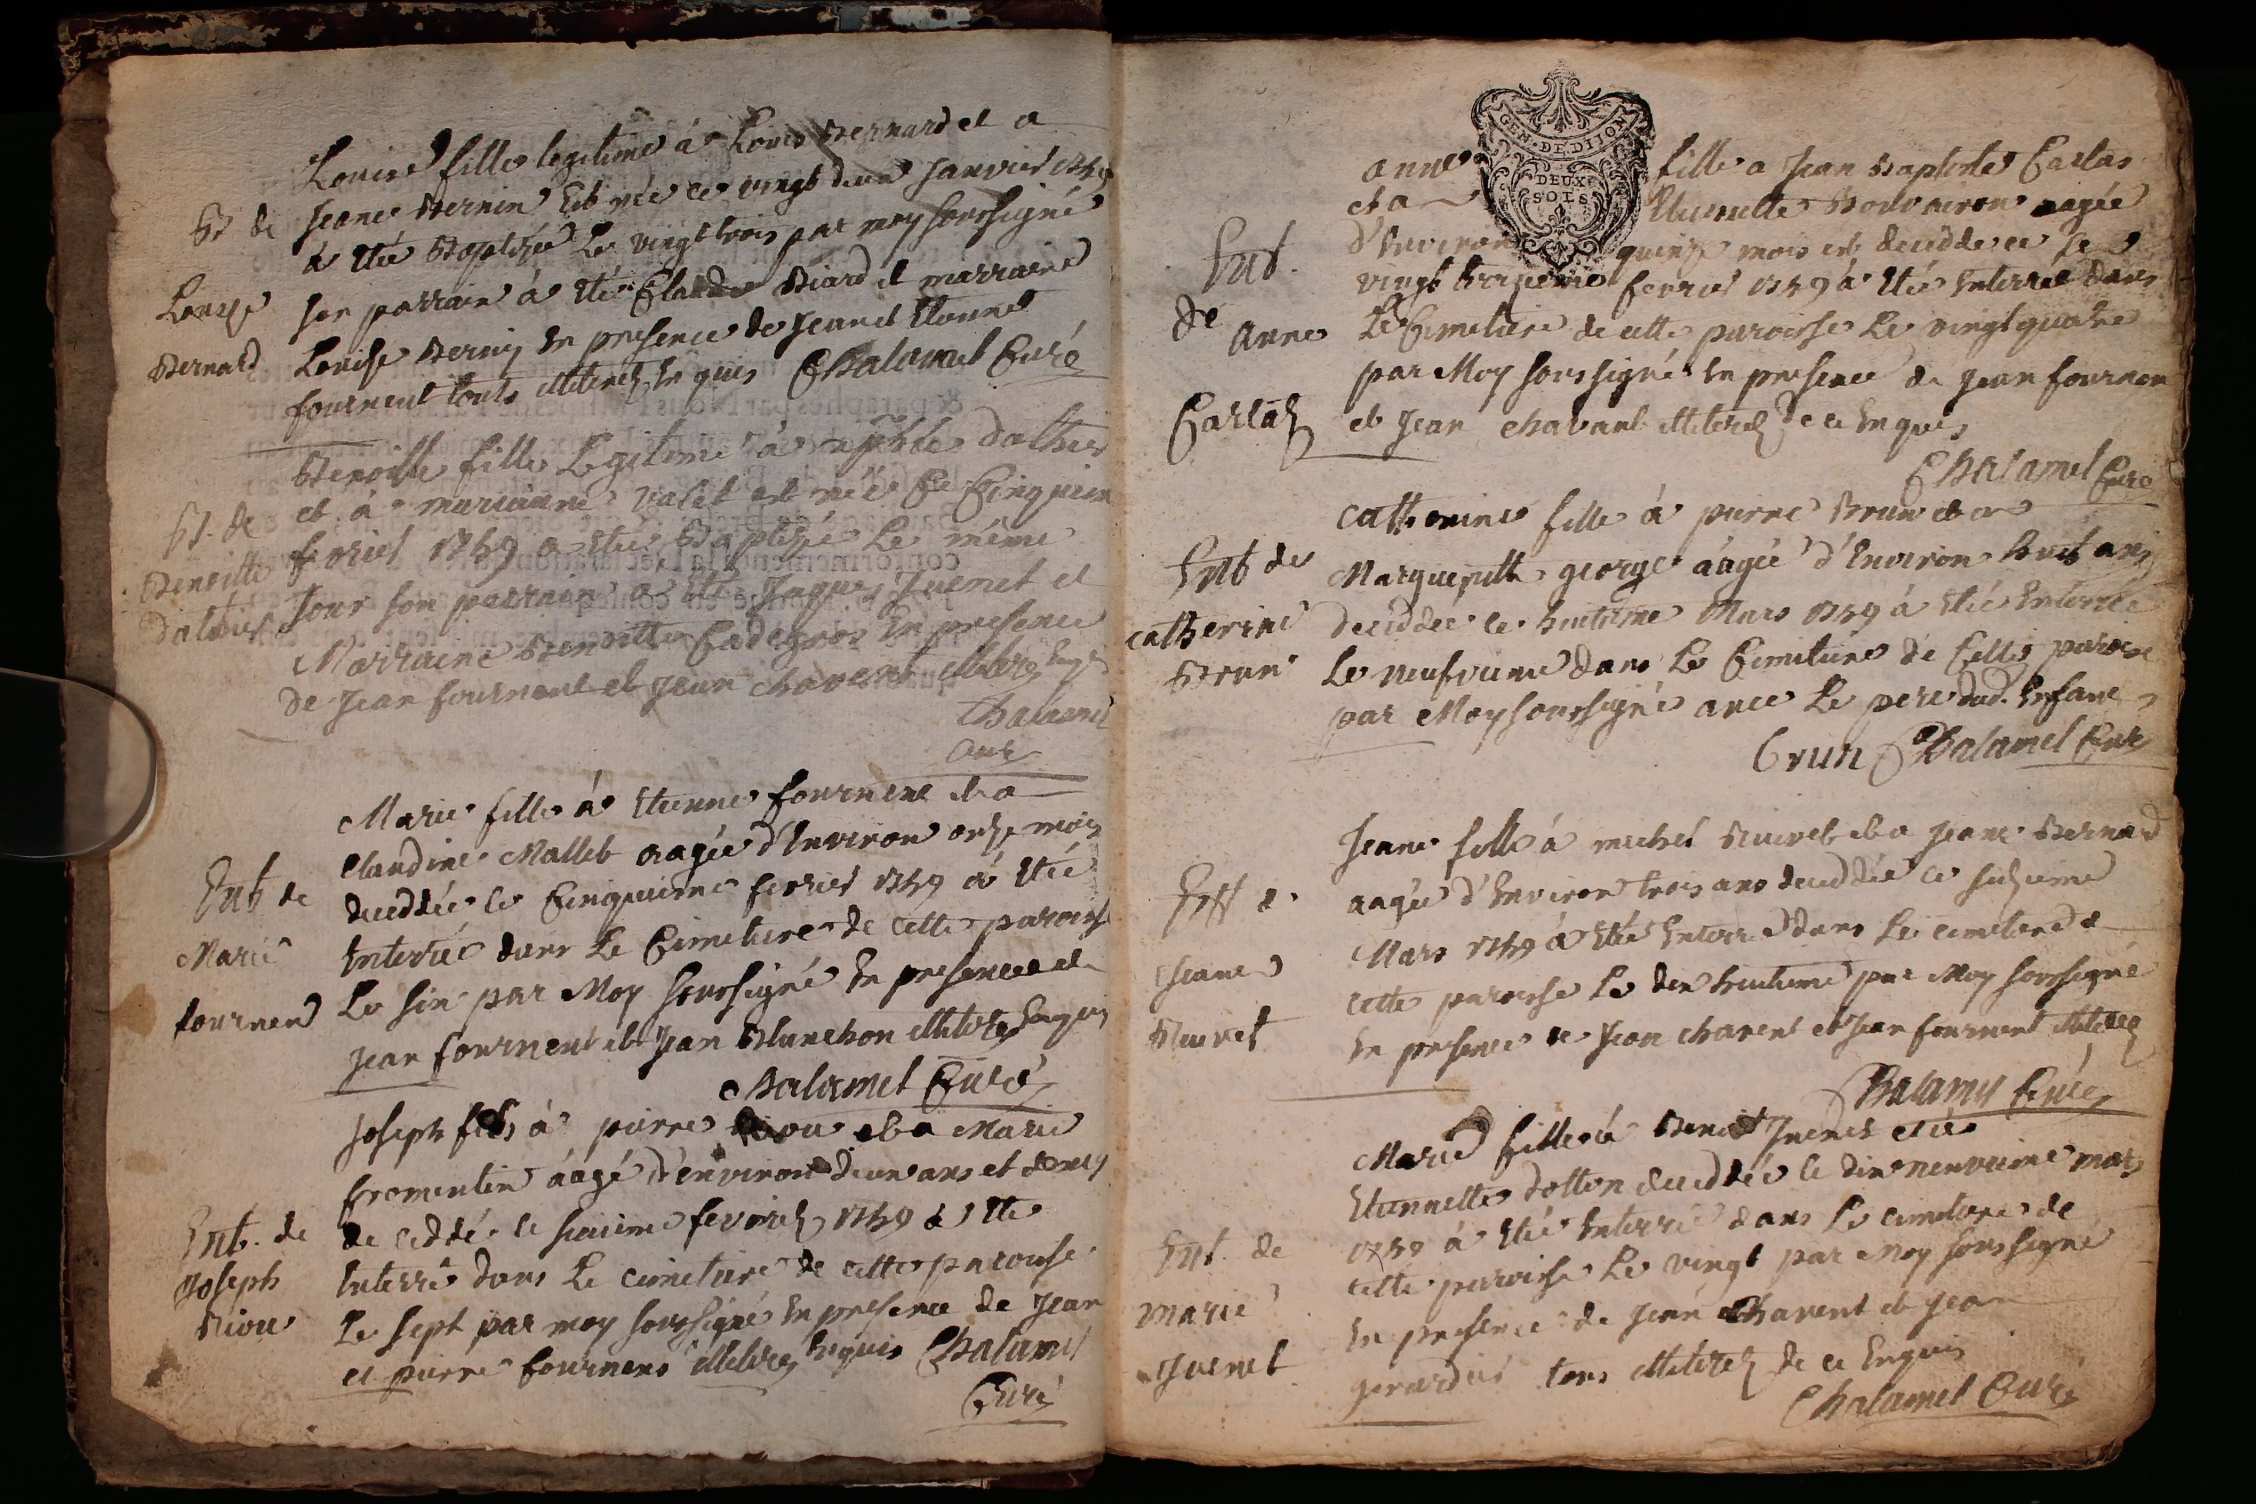 Louise fille legitime à Louis Bernard et a
Jeane Bernin Est née ce vingt deux Janvier 1759
à Eté Baptisée Le vingt trois par moy soussigné
son parrain à Eté Claude Biard et marraine
Louise Bernin En presence de Jean et Etienne
fournent touts illiterés Enquis Chalamel Curé
B. de
Louise
Bernard
Benoitte fille Legitime à
et à marianne valet est née Ce Cinquiem
fevrier 1759 a Eté Baptisée Le même
Jour son parrain a Eté Jaques Juenet et
Marraine Benoitte Cadegros En presence
de Jean fournent et Jean Chavent illiteres Enqs
Chalamel
Curé
Bt. de
Benoitte
Marie fille à Etienne fournent et a
Claudine Mallet aagée d'Environ onze mois
deceddée le Cinquieme fevrier 1759 à Eté
Enterrée dans Le Cimetiere de cette paroisse
Le six par Moy soussigné En presence de
Jean fournent et Jean Blanchon illiteres Enquis
Chalamel Curé
Ent de
Marie
fournend
Joseph fils à pierre Riou et a Marie
fromentin aagé d'environ deux ans et demy
deceddé le sixieme fevrier 1759 à Eté
Enterré dans Le cimetiere de cette paroisse
Le sept par moy soussigné En presence de Jean
et pierre fournens illiteres Enquis Chalamel
Curé
Ent. de
Joseph
Riou
GEN. DE DIJON
DEUX
SOLS
anne fille a Jean Baptiste Carlas
et a Etiennette aagée
d'Environ quinze mois est deceddee Le
vingt troisieme fevrier 1759 à Eté Enterree dans
Le Cimetiere de cette paroisse Le vingt quatre
par Moy soussigné En presence de Jean fournen
et Jean Chavant illiterés de ce Enquis
Chalamel Curé
Ent.
de
Anne
Carlas
Catherine fille à pierre Brun et a
Margueritte george aagée d'Environ huit ans
deceddée le huitieme Mars 1759 à Eté Enterrée
Le neufvieme dans Le Cimetiere de Cette paroisse
par Moy soussigné avec Le pere dud. Enfant
brun Chalamel Curé
Ent de
Catherine
Brun
Jeane fille à michel et a Jeane Bernard
aagée d'Environ trois ans deceddée ce
Mars 1759 à Eté Enterré dans Le cimetiere de
cette paroisse Le dix huitieme par Moy soussigné
En presence de Jean Chavent et Jean fournent illiterés
Chalamel Curé
Jeane
Marie fille à Benoit Juenet et à
Etiennette dotton deceddée le dix neuvieme mars
1759 à Eté Enterré dans Le cimetiere de
cette paroisse Le vingt par Moy soussigné
En presence de Jean Chavent et Jean
tous illiterés de ce Enquis
Chalamel Curé
Ent. de
Marie
Juenet